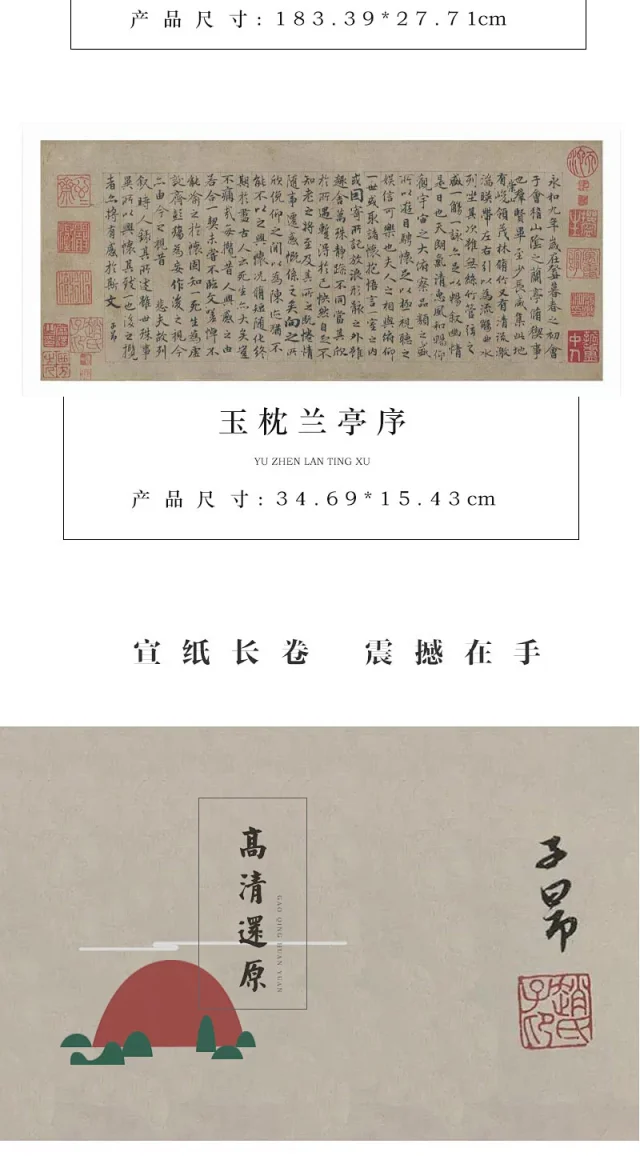 产品尺寸:183.39*27.71cm
永和九年歲在癸丑暮春之初會
于會稽山陰之蘭亭脩禊事
也群賢畢至少長咸集此地
有峻領茂林脩竹又有清流激
湍暎帶左右引以為流觴曲水
列坐其次雖無絲竹管弦之
盛一觴一詠亦足以暢敘幽情
是日也天朗氣清惠風和暢仰
觀宇宙之大俯察品類之盛
所以遊目騁懷足以極視聽之
娛信可樂也夫人之相與俯仰
一世或取諸懷抱悟言一室之內
或因寄所託放浪形骸之外雖
趣舍萬殊靜躁不同當其欣
於所遇暫得於己快然自足不
知老之將至及其所之既惓情
隨事遷感慨係之矣向之所
欣俛仰之間以為陳迹猶不
能不以之興懷況脩短隨化終
期於盡古人云死生亦大矣豈
不痛哉每攬昔人興感之由
若合一契未嘗不臨文嗟悼不
能喻之於懷固知一死生為虛
誕齊彭殤為妄作後之視今
亦由今之視昔 悲夫故列
敘時人錄其所述雖世殊事
異所以興懷其致一也後之攬
者亦將有感於斯文 子昂
玉枕兰亭序
YU ZHEN LAN TING XU
产品尺寸:34.69*15.43cm
宣纸长卷 震撼在手
高清還原
GAO QING HUAN YUAN
子昂
趙氏子印